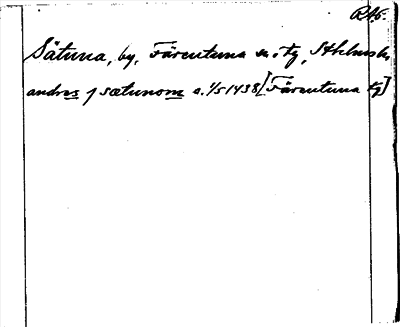 RA6.
Sätuna, by, Färentuna sn o. tg, Sthlms l.
andres j sætunom o. 1/5 1438 [Färentuna tg]